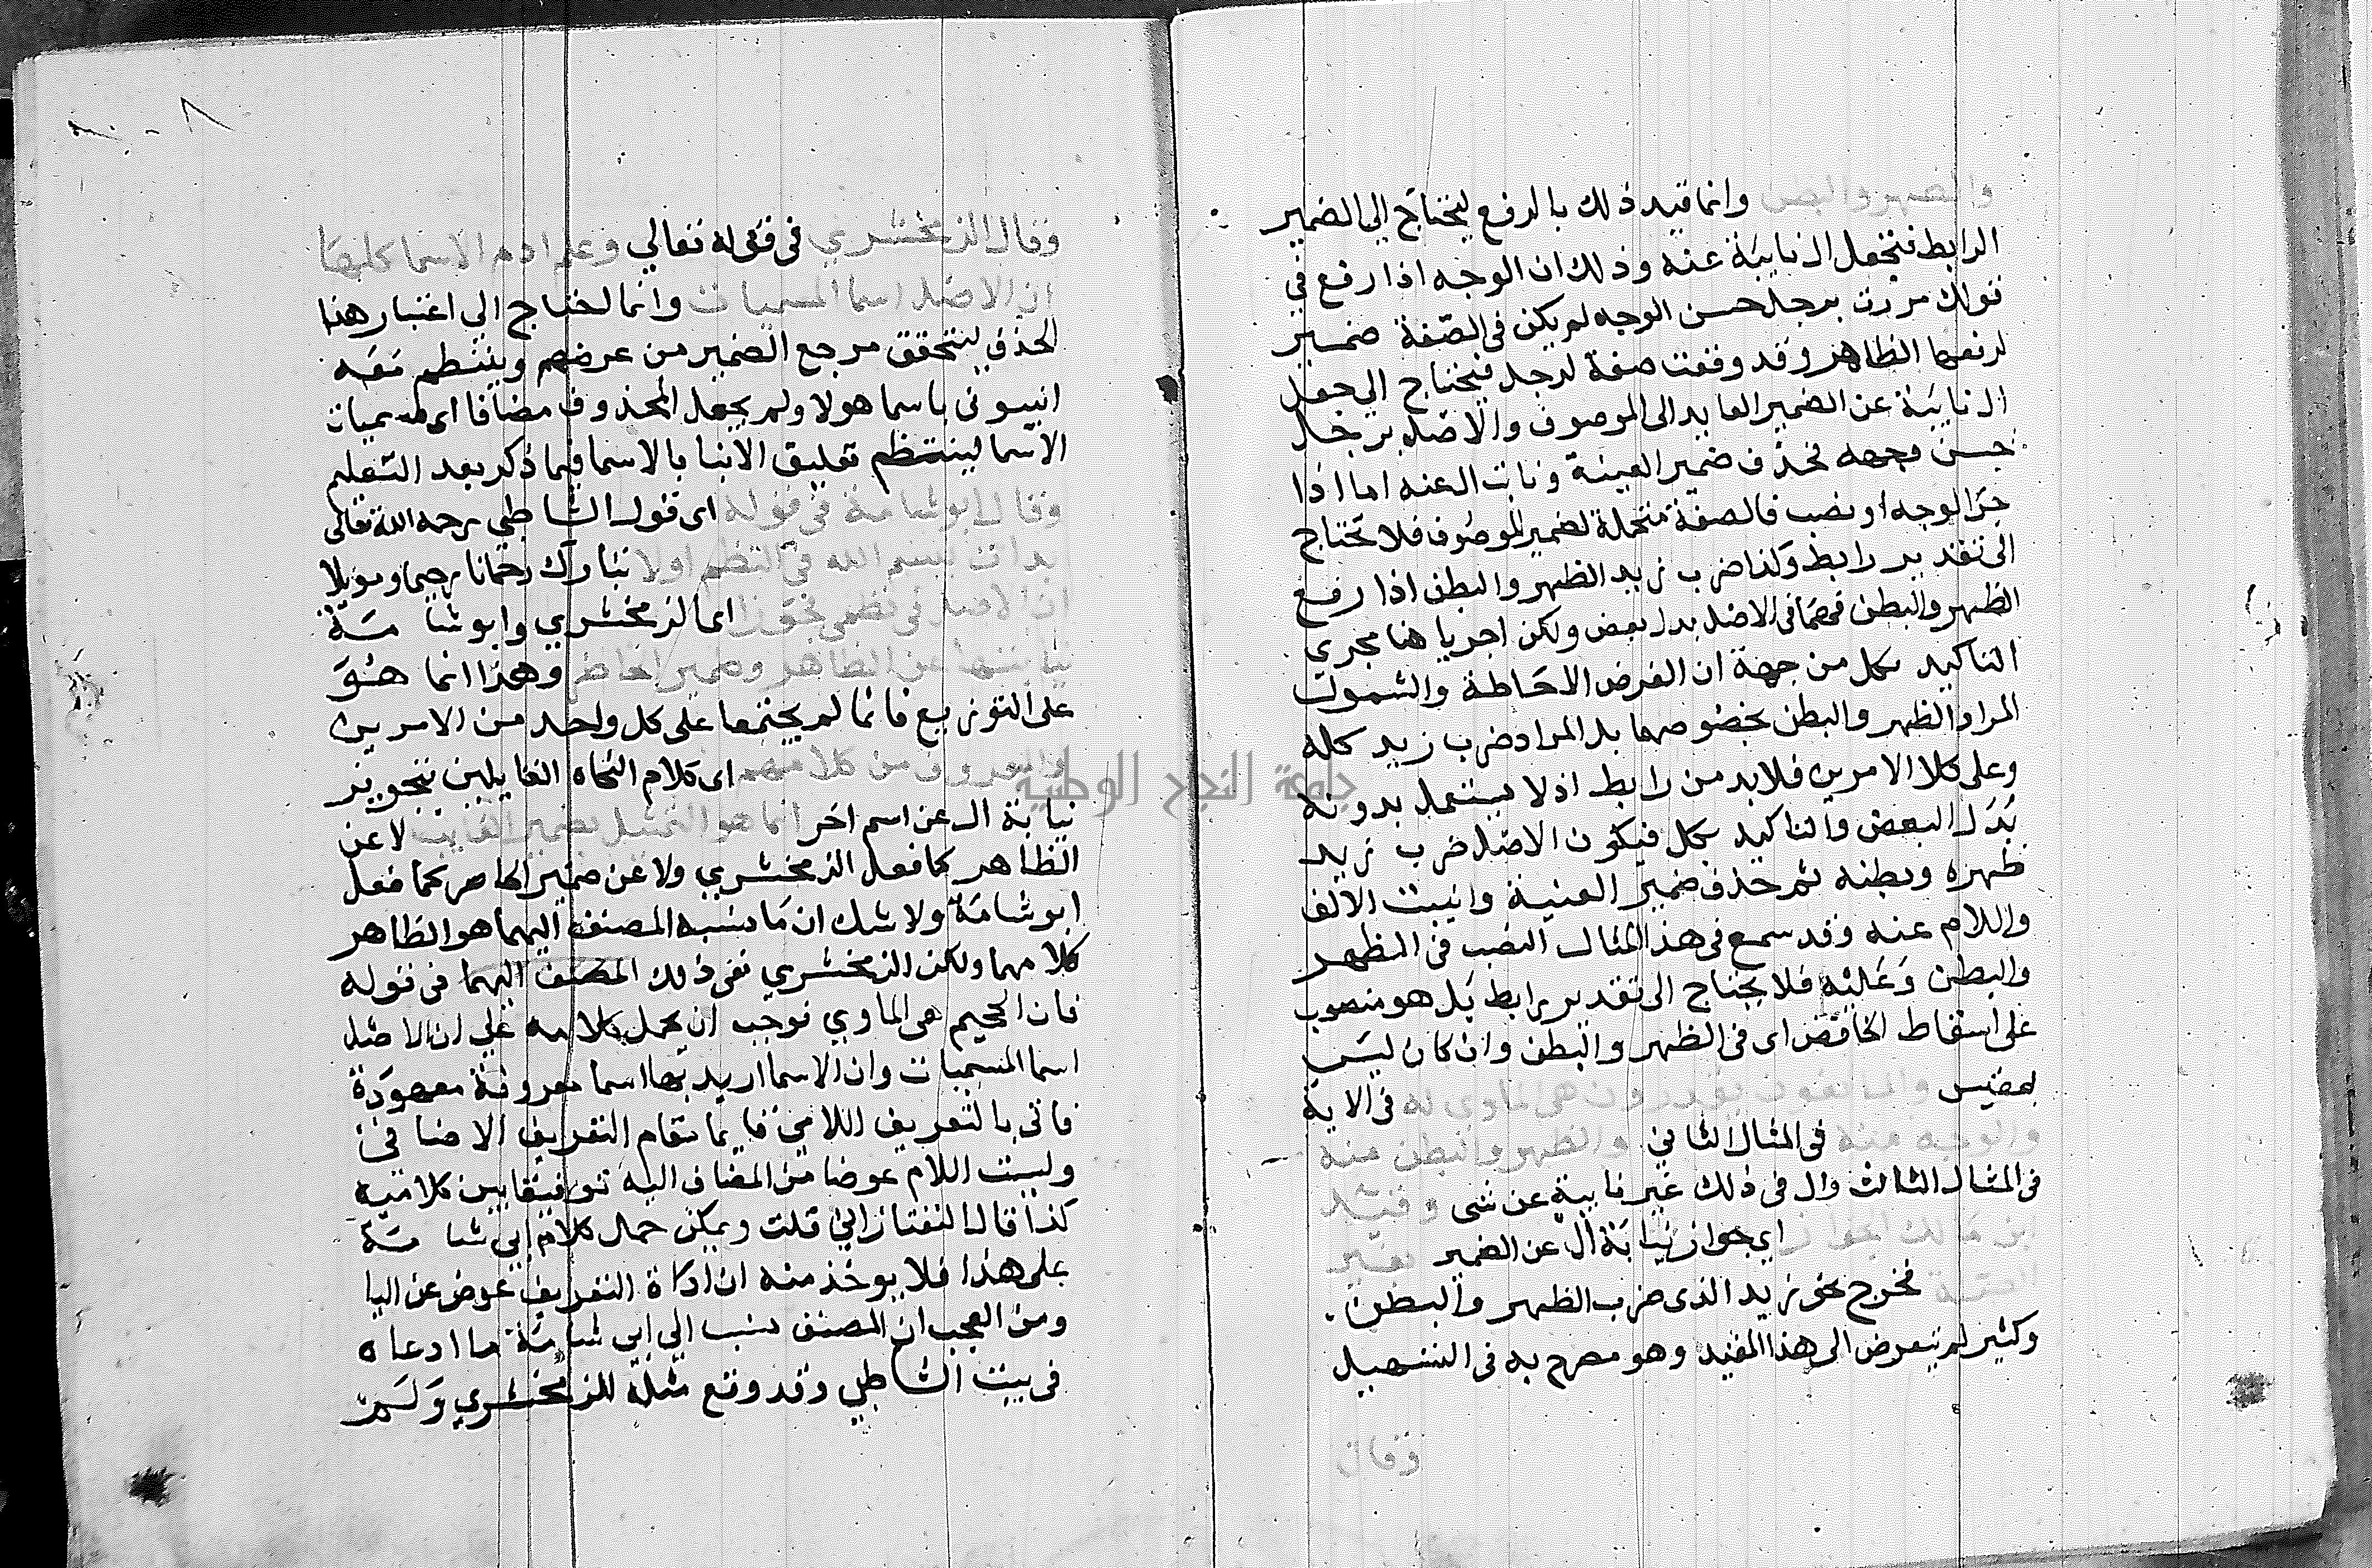 والظهر والبطن وانما قيد ذلك بالرفع ليحتاج الى الضمير
الرابط فتجعل ال نايبة عنه وذلك ان الوجه اذا رفع في
قولك مررت برجل حسن الوجه لم يكن في الصفة ضمير
لرفعها الظاهر وقد وقعت صفة لرجل فيحتاج الى جعل
ال نايبة عن الضمير العايد الى الموصوف والاصل برجل
حسن وجهه فحذف ضمير الغيبة ونابت ال عنه اما اذا
جر الوجه او نصب فالصفة متحملة لضمير الموصوف فلا تحتاج
الى تقدير رابط وكذا ضرب زيد الظهر والبطن اذا رفع
الظهر والبطن فهما في الاصل بدل بعض ولكن اجريا هنا مجرى
التاكيد بكل من جهة ان الغرض الاحاطة والشمول
المراد الظهر والبطن بخصوصهما بل المراد ضرب زيد كله
وعلى كلا الامرين فلا بد من رابط اذ لا يستعمل بدونه
بدل البعض والتاكيد بكل فيكون الاصل ضرب زيد
ظهره وبطنه ثم حذف ضمير الغيبة وانيبت الالف
واللام عنه وقد سمع في هذا المثال النصب في الظهر
والبطن وعليه فلا يحتاج الى تقدير رابط بل هو منصوب
على اسقاط الخافض اى في الظهر والبطن وان كان ليس
بمقيس والمانعون يقدرون هي الماوى له في الاية
والوجه منه في المثال الثاني والظهر والبطن منه
في المثال الثالث وال في ذلك غير نايبة عن شى وقيد
ابن مالك الجواز اي جواز نيابة ال عن الضمير بغير
الصلة فخرج نحو زيد الذى ضرب الظهر والبطن
وكثير لم يتعرض الى هذا القيد وهو مصرح به في التسهيل
وقال
وقال الزمخشري في قوله تعالي وعلم ادم الاسما كلها
ان الاصل اسما المسميات وانما احتاج الي اعتبار هذا
الحذف ليتحقق مرجع الضمير من عرضهم وينتظم معه
انبيوني باسما هولا ولم يجعل المحذوف مضافا اى مسميات
الاسما لينتظم تعليق الانبا بالاسما فيما ذكر بعد التعليم
وقال ابو شامة في قوله اى قول الشاطبي رحمه الله تعالى
بدات ببسم الله في النظم اولا تبارك رحمانا رحيما وموئلا
ان الاصل في نظمى فجوزا اى الزمخشري وابو شامة
نيابتها عن الظاهر وضمير الحاضر وهذا انما هو
على التوزيع فانما لم يجتمعا على كل واحد من الامرين
والمعروف من كلامهم اى كلام النحاه القايلين بتجويز
نيابة ال عن اسم اخر انما هو التمثيل بضمير الغايب لا عن
الظاهر كما فعل الزمخشري ولا عن ضمير الحاضر كما فعل
ابو شامة ولا شك ان ما نسبه المصنف اليهما هو الظاهر
كلامهما ولكن الزمخشري نفى ذلك المصنف اليهما في قوله
فان الجحيم هي الماوي فوجب ان يحمل كلامه على ان الاصل
اسما المسميات وان الاسما اريد بها اسما معروفة معهودة
فاتى بالتعريف اللامي قايما مقام التعريف الاضافي
وليست اللام عوضا من المضاف اليه توفيقا بين كلاميه
كذا قال التفتازاني قلت ويمكن حمل كلام ابي شامة
على هذا فلا يوخذ منه ان اداة التعريف عوض عن اليا
ومن العجب ان المصنف نسب الي ابي شامة ما ادعاه
في بيت الشاطبي وقد وقع مثله للزمخشري ولم
جامعة النجاح الوطنية